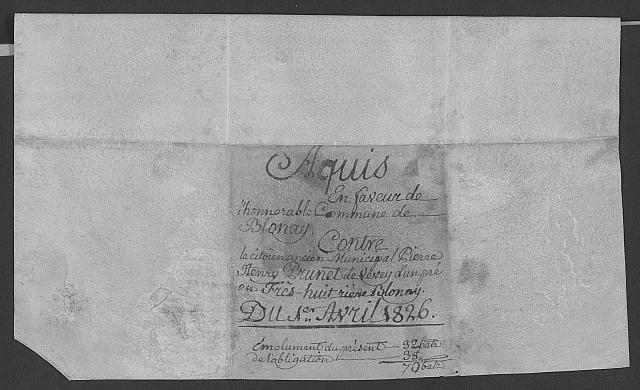 Aquis
En faveur de
l'honnorable Commune de
Blonay.
Contre
le citoïen ancien Municipal Pierre
Henry Prunet de Vevey d'un pré
en Três-huit riére Blonay.
Du 1er Avril 1826.
Emolument du présent — 32 batz
de l'obligation — 38.
70 batz